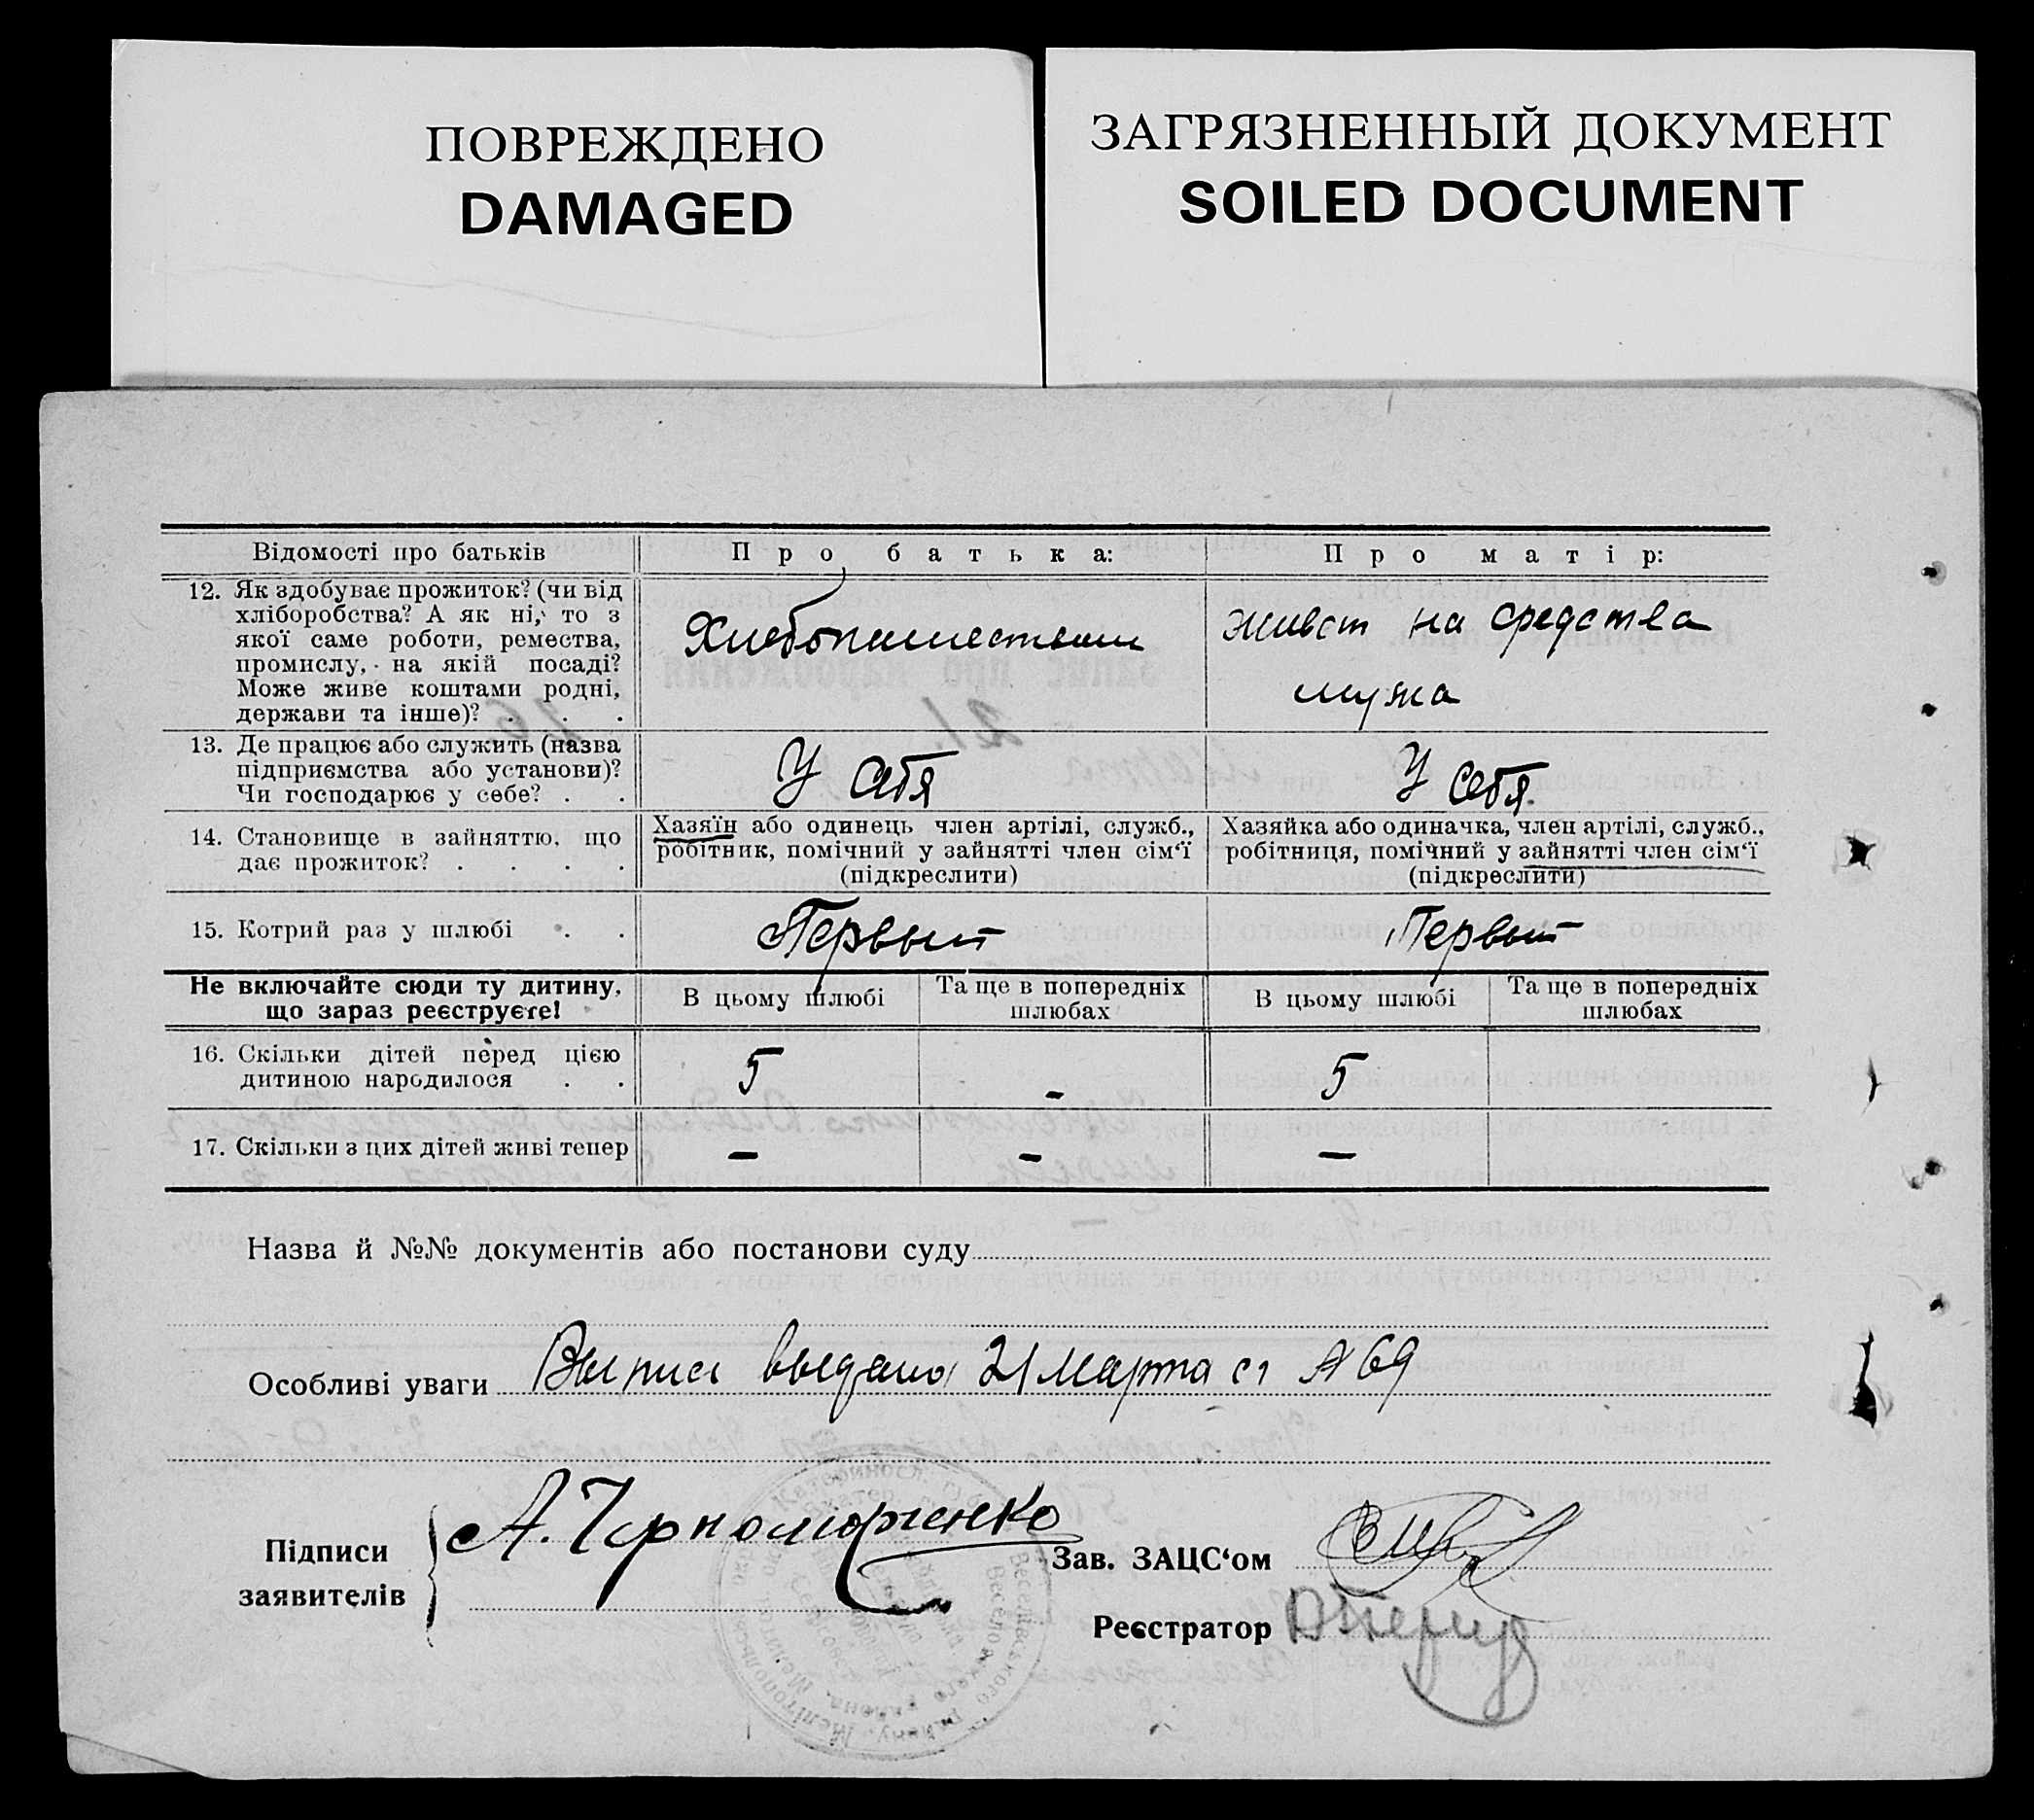 ПОВРЕЖДЕНО
DAMAGED
ЗАГРЯЗНЕННЫЙ ДОКУМЕНТ
SOILED DOCUMENT
Відомості про батьків
Про батька:
Про матір:
12. Як здобуває прожиток? (чи від
хліборобства? А як ні, то з
якої саме роботи, ремества,
промислу, на якій посаді?
Може живе коштами родні,
держави та інше)? . . .
Хлебопашеством
живет на средства
мужа
13. Де працює або служить (назва
підприємства або установи)?
Чи господарює у себе? . .
У себя
У себя
14. Становище в зайняттю, що
дає прожиток? . . . .
Хазяїн або одинець член артілі, служб.,
робітник, помічний у зайнятті член сім‘ї
(підкреслити)
Хазяйка або одиначка, член артілі, служб.,
робітниця, помічний у зайнятті член сім‘ї
(підкреслити)
15. Котрий раз у шлюбі . .
Первый
Первый
Не включайте сюди ту дитину,
що зараз реєструєте!
В цьому шлюбі
Та ще в попередніх
шлюбах
В цьому шлюбі
Та ще в попередніх
шлюбах
16. Скільки дітей перед цією
дитиною народилося . .
5
-
5
17. Скільки з цих дітей живі тепер
-
-
-
Назва й №№ документів або постанови суду
Особливі уваги Выпись выдана 21 марта 69
Підписи
заявителів
А. Чорноморченко
Зав. ЗАЦС‘ом
Реєстратор